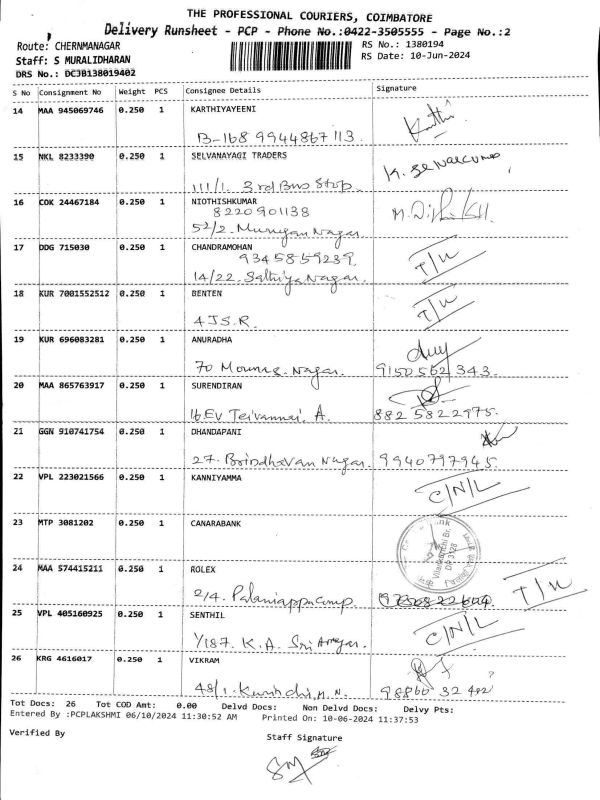 THE PROFESSIONAL COURIERS, COIMBATORE
Delivery Runsheet - PCP - Phone No.:0422-3505555 - Page No.:2
Route: CHERNMANAGAR
RS No.: 1380194
Staff: S MURALIDHARAN
RS Date: 10-Jun-2024
DRS No.: DCJB138019402
S No Consignment No Weight PCS Consignee Details Signature
14 MAA 945069746 0.250 1 KARTHIYAYEENI
B-168 9944867113 Karthi
15 NKL 8233390 0.250 1 SELVANAYAGI TRADERS
111/1. 3rd Bus Stop
16 COK 24467184 0.250 1 NIOTHISHKUMAR
8220901138
52/2. Murugan Nagar
17 DDG 715030 0.250 1 CHANDRAMOHAN
9345859239
14/22. Sathiya Nagar. T/N
18 KUR 7001552512 0.250 1 BENTEN T/N
4 JS.R.
19 KUR 696083281 0.250 1 ANURADHA
70 Nagar. 9150562343
20 MAA 865763917 0.250 1 SURENDIRAN
16 EV A. 8825822975
21 GGN 910741754 0.250 1 DHANDAPANI
27. Brindhavan Nagar. 9940797945
22 VPL 223021566 0.250 1 KANNIYAMMA C/N/L
23 MTP 3081202 0.250 1 CANARABANK
24 MAA 574415211 0.250 1 ROLEX
2/4. T/N
25 VPL 405160925 0.250 1 SENTHIL C/N/L
1/187. K.A. Sri
26 KRG 4616017 0.250 1 VIKRAM
48/1.
Tot Docs: 26 Tot COD Amt: 0.00 Delvd Docs: Non Delvd Docs: Delvy Pts:
Entered By :PCPLAKSHMI 06/10/2024 11:30:52 AM Printed On: 10-06-2024 11:37:53
Verified By
Staff Signature